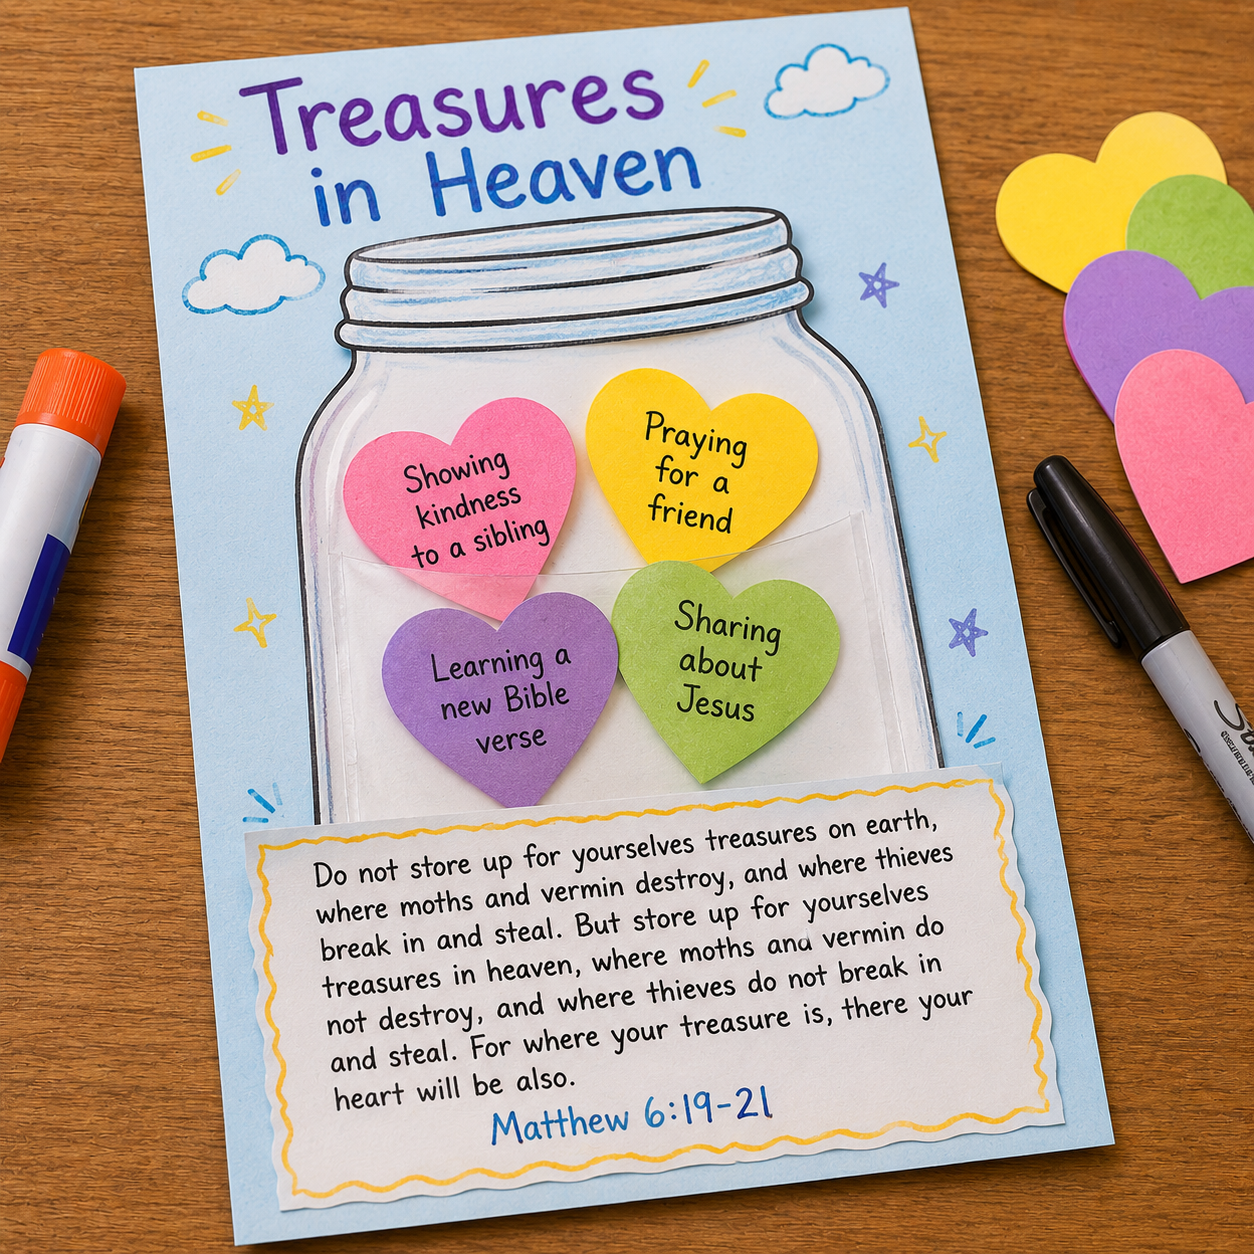 Treasures
in Heaven
Showing
kindness
to a sibling
Praying
for a
friend
Learning a
new Bible
verse
Sharing
about
Jesus
Do not store up for yourselves treasures on earth,
where moths and vermin destroy, and where thieves
break in and steal. But store up for yourselves
treasures in heaven, where moths and vermin do
not destroy, and where thieves do not break in
and steal. For where your treasure is, there your
heart will be also.
Matthew 6:19-21